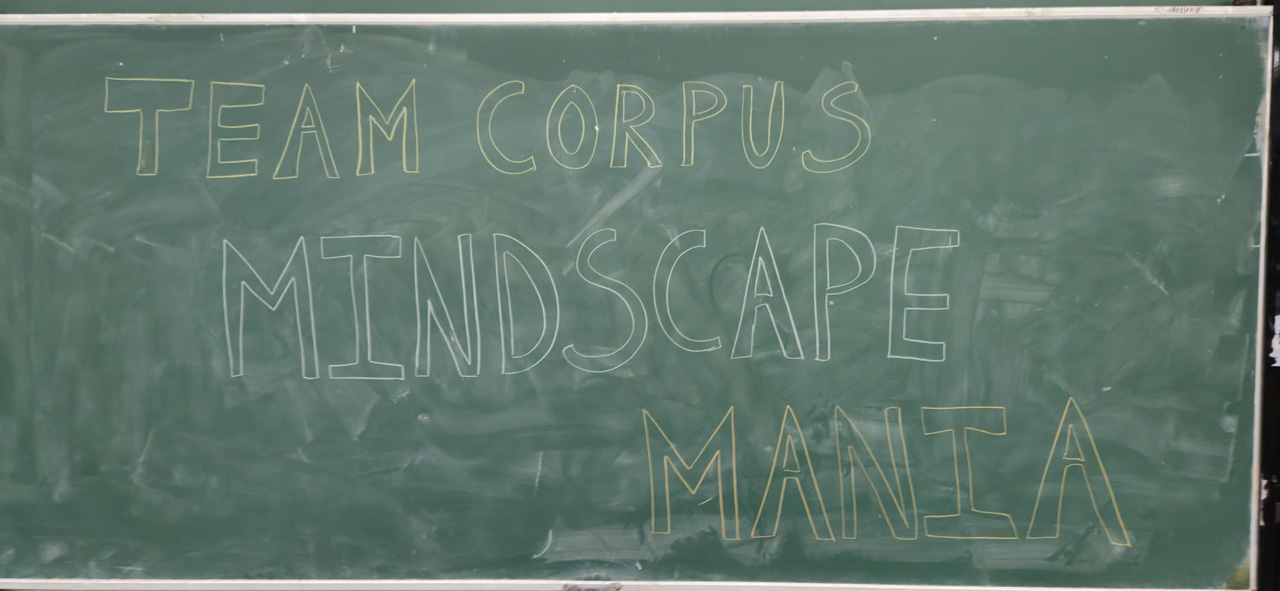 TEAM CORPUS
MINDSCAPE
MANIA